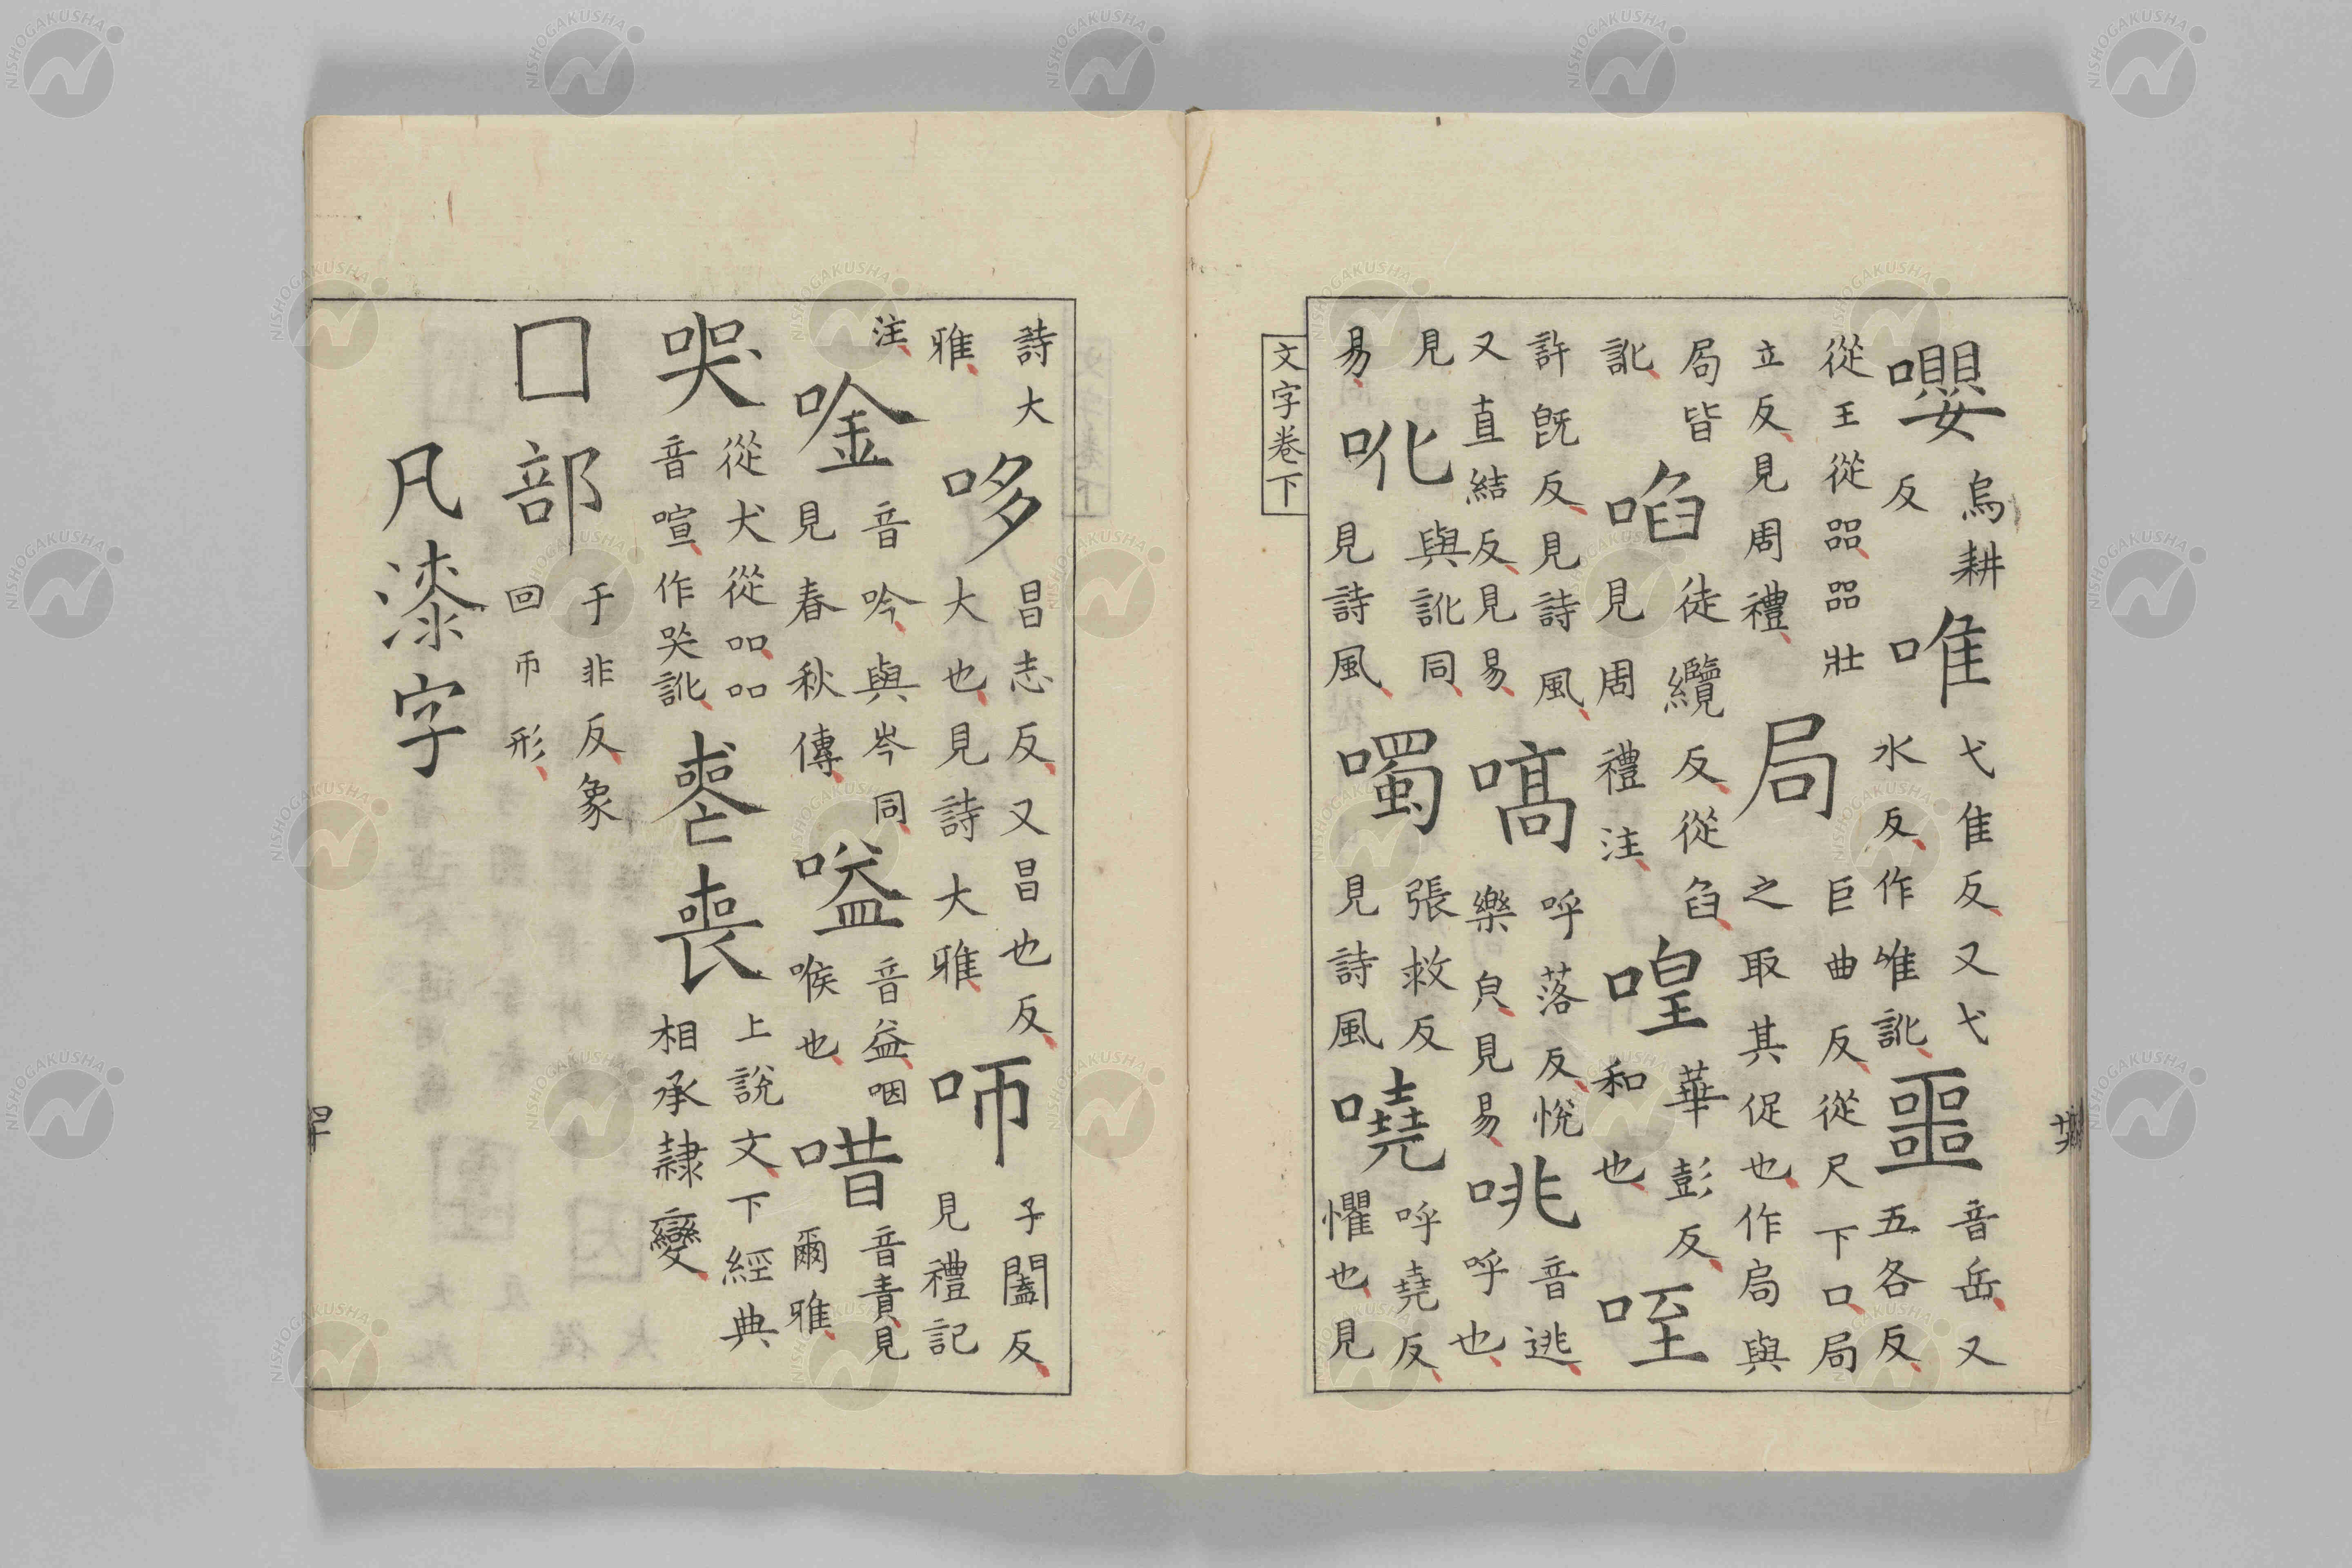 嚶 烏耕反 唯 弋隹反又弋水反作唯訛 噩 音岳又五各反
從王從㗊㗊壯立反見周禮 局 巨曲反從尺下口局之取其促也作局與
局皆訛 啗 徒纜反從臽見周禮注 喤 華彭反和也 咥
許旣反見詩風又直結反見易 嗃 呼落反悅樂皃見易 咷 音逃呼也
見易 吪 與訛同見詩風 噣 張救反見詩風 嘵 呼堯反懼也見
文字卷下
詩大雅 哆 昌志反又昌也反大也見詩大雅 咂 子闔反見禮記
注 唫 音吟與岑同見春秋傳 嗌 音益咽喉也 唶 音責見爾雅
哭 從犬從吅吅音喧作哭訛 𠷔喪 上說文下經典相承隸變
囗部 于非反象回帀形
凡漆字